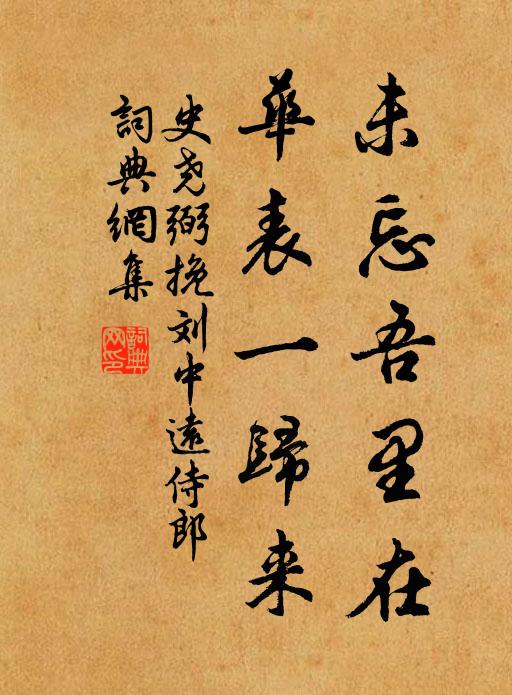 未忘吾里在
華表一歸来
史尧弼挽刘中遠侍郎
詞典網集
詞典网印